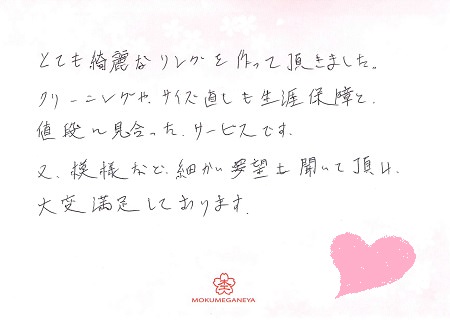 とても綺麗なリングを作って頂きました。
クリーニングや、サイズ直しも生涯保障と、
値段に見合った、サービスです。
又、模様など、細かい要望も聞いて頂け、
大変満足しております。
MOKUMEGANEYA